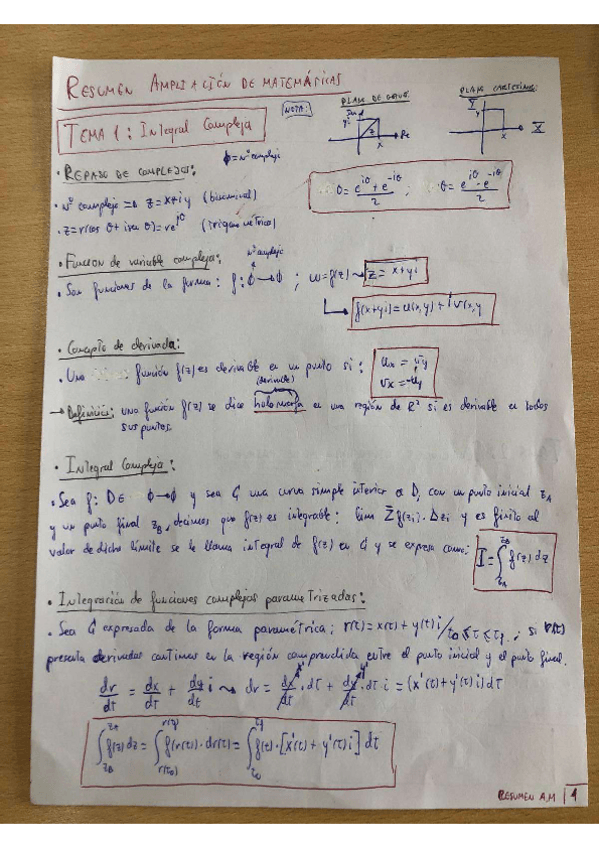 RESUMEN AMPLIACIÓN DE MATEMÁTICAS
NOTA:
PLANO DE GAUSS:
Re
x
PLANO CARTESIANO:
Y
y
X
x
TEMA 1: Integral Compleja
ϕ = nº complejo
• REPASO DE COMPLEJOS:
θ = e^{iθ} + e^{-iθ} / 2 ; θ = e^{iθ} - e^{-iθ} / 2
• nº complejo => z = x + iy (binominal)
• z = r(cos θ + i sen θ) = re^{iθ} (trigonométrica)
nº complejo
• Función de variable compleja:
• Son funciones de la forma: f: ϕ → ϕ ; w = f(z) → z = x + yi
f(x+yi) = u(x,y) + i v(x,y
• Concepto de derivada:
• Una función f(z) es derivable en un punto si: ux = vy
vx = -uy
(derivable)
→ Definición: una función f(z) se dice holomorfa en una región de R² si es derivable en todos
sus puntos.
• Integral Compleja:
• Sea f: D ∈ ϕ → ϕ y sea G una curva simple interior a D, con un punto inicial z_A
y un punto final z_B, decimos que f(z) es integrable: lim Σ f(zi) · Δzi y es finito al
valor de dicho límite se le llama integral de f(z) en G y se expresa como: I = ∫_{z_A}^{z_B} f(z) dz
• Integración de funciones complejas parametrizadas:
• Sea G expresada de la forma paramétrica; r(t) = x(t) + y(t) i / t0 ≤ t ≤ t1, si r(t)
presenta derivadas continuas en la región comprendida entre el punto inicial y el punto final.
dr/dt = dx/dt + dy/dt i → dr = dx/dt · dt + dy/dt · dt i = (x'(t) + y'(t) i) dt
∫ f(z) dz = ∫ f(r(t)) · dr(t) = ∫ f(t) · [x'(t) + y'(t) i] dt
RESUMEN A.M | 1